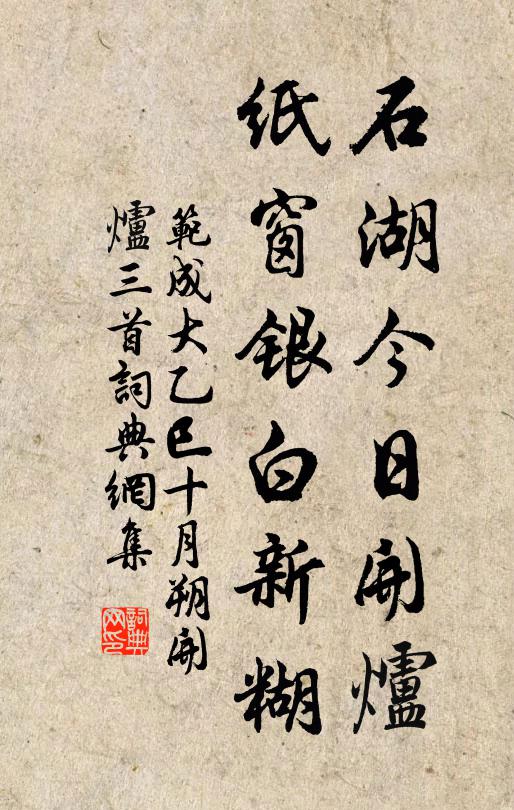 石湖今日開爐
紙窗銀白新糊
範成大乙巳十月朔開
爐三首詞典網集
詞典网印